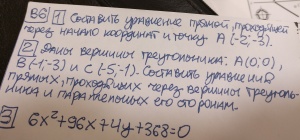 В6 1 Составить уравнение прямой, проходящей
через начало координат и точку А (-2;-3).
2 Даны вершины треугольника: А(0;0)
В(-1;-3) и С(-5;-1). Составить уравнения
прямых, проходящих через вершины треуголь-
ника и параллельных его сторонам.
3 6x²+96x+4y+368=0